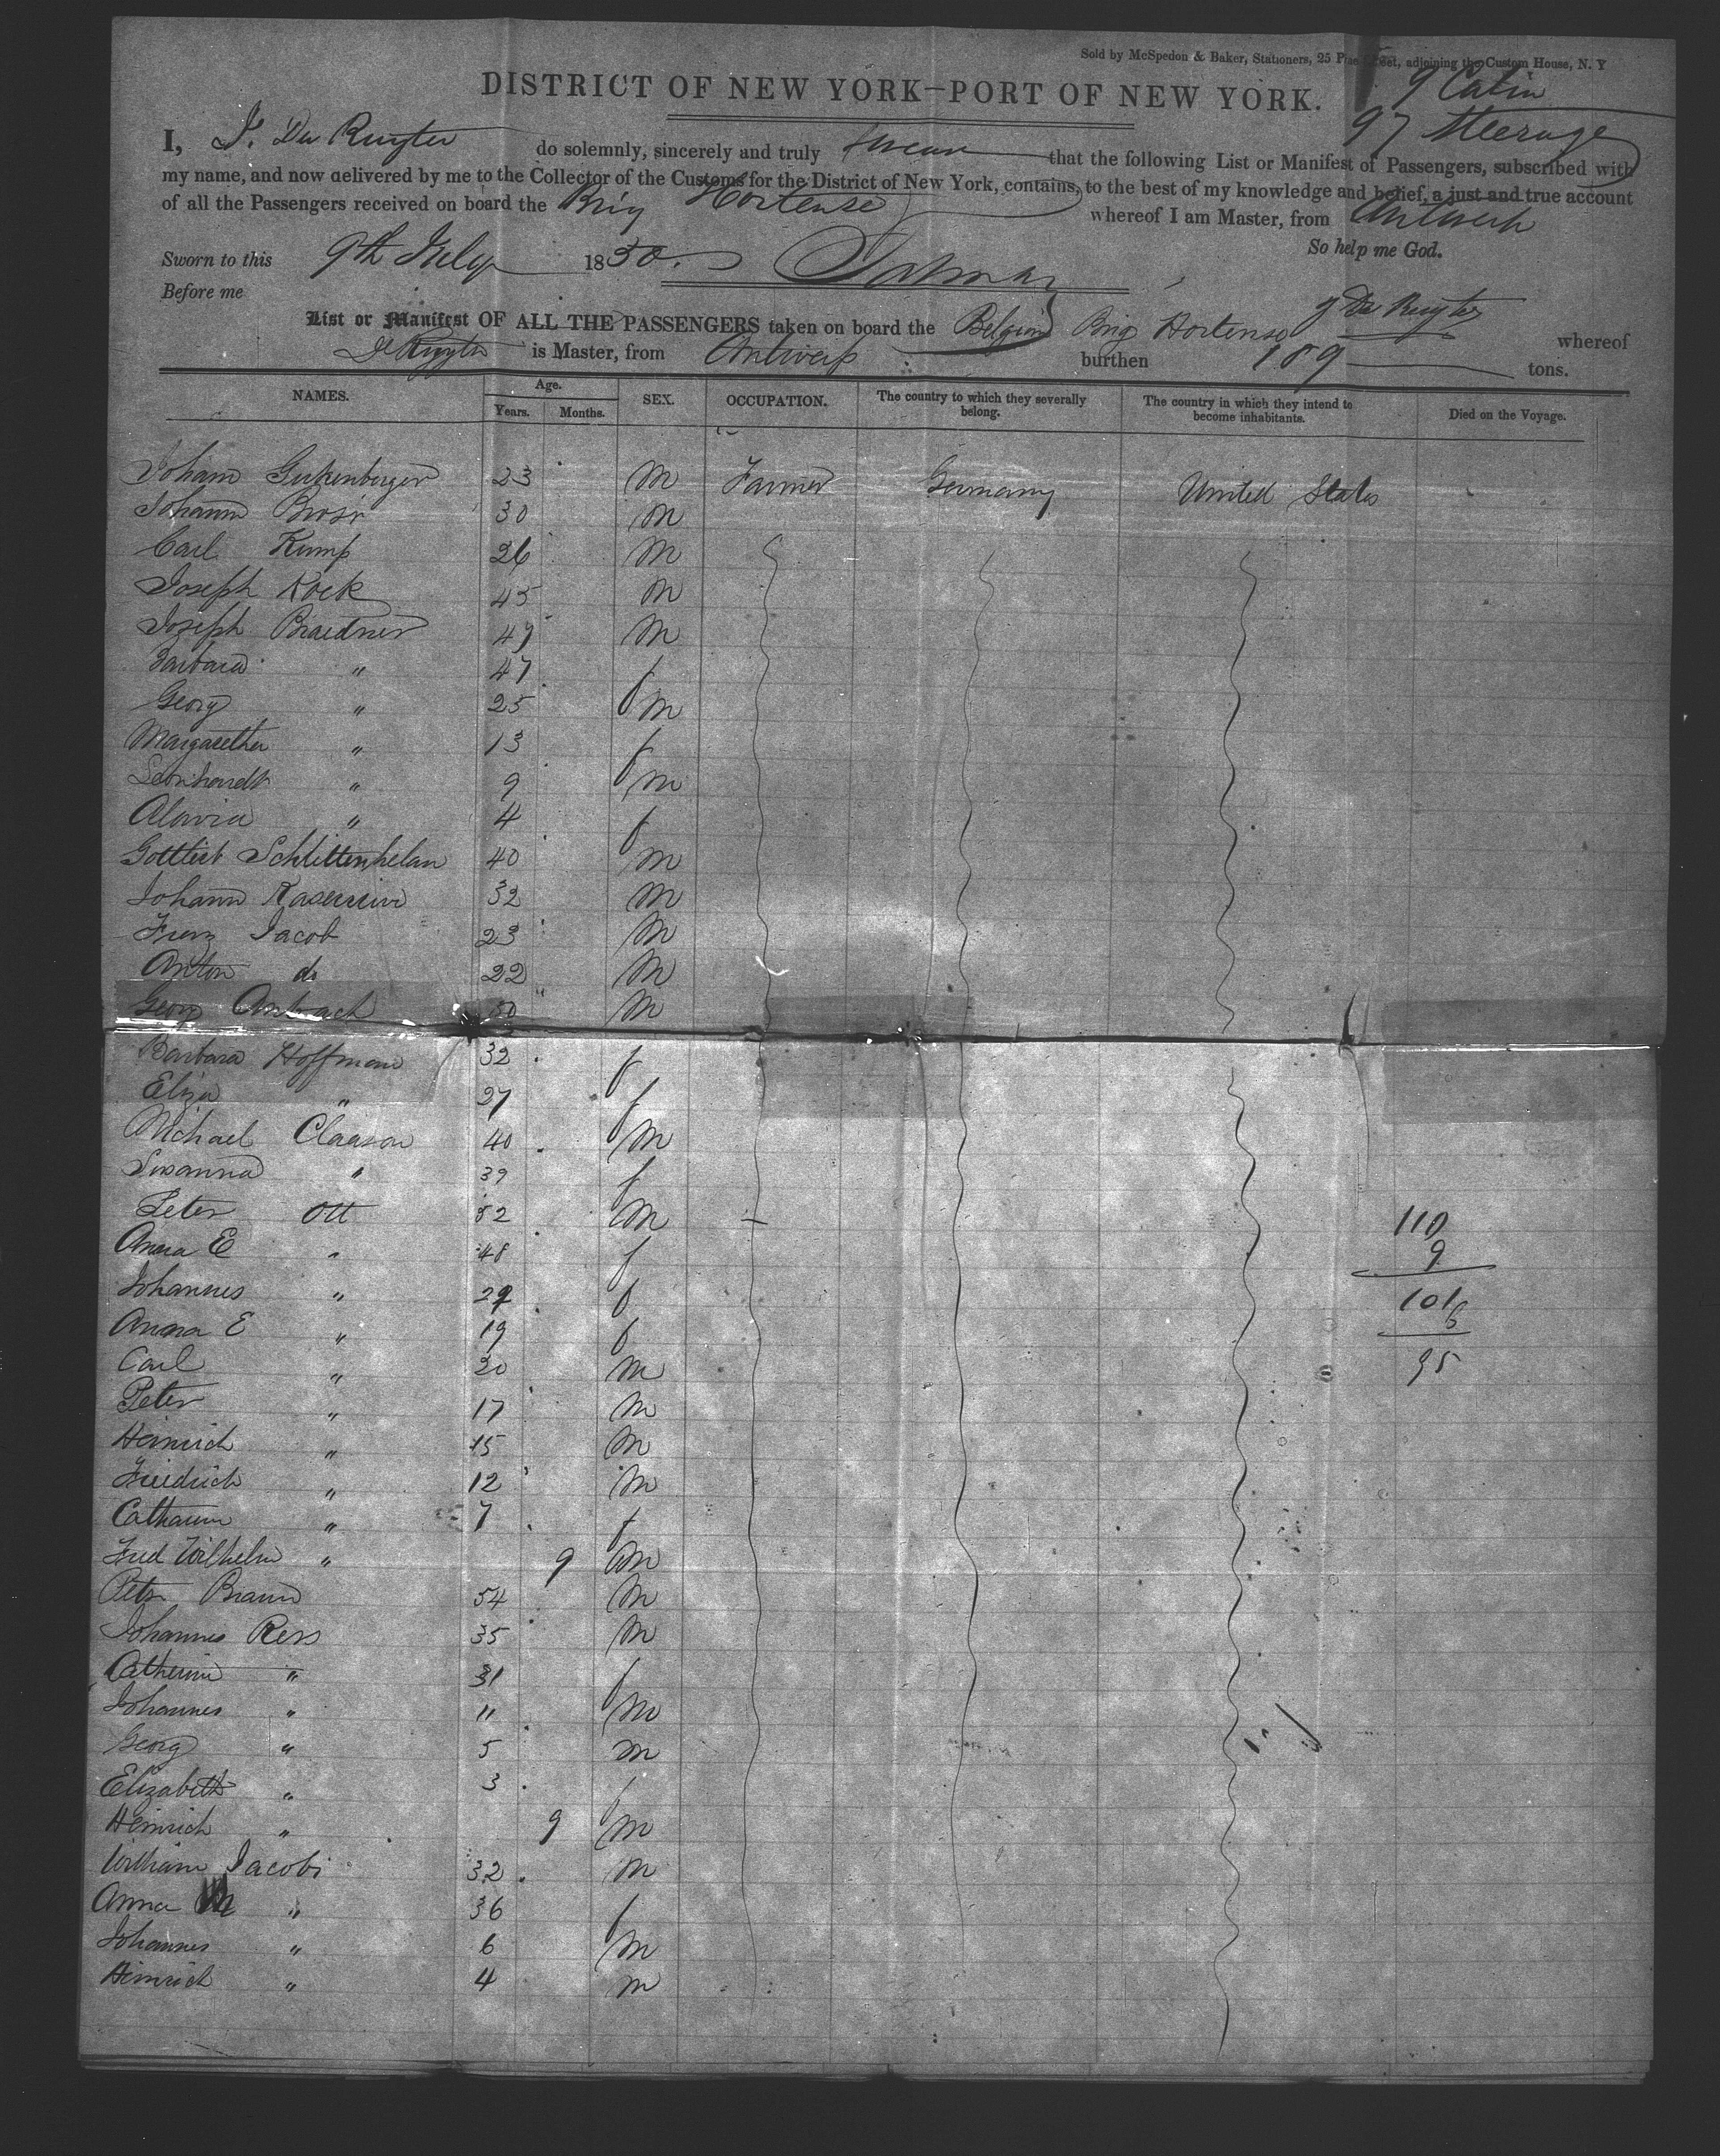 Sold by McSpedon & Baker, Stationers, 25 Pine Street, adjoining the Custom House, N. Y
9 Cabin
97 Steerage
DISTRICT OF NEW YORK—PORT OF NEW YORK.
I, J. De Ruyter do solemnly, sincerely and truly swear that the following List or Manifest of Passengers, subscribed with
my name, and now delivered by me to the Collector of the Customs for the District of New York, contains, to the best of my knowledge and belief, a just and true account
of all the Passengers received on board the Brig Hortense whereof I am Master, from Antwerp
So help me God.
Sworn to this 9th July 1850.
Before me
J De Ruyter
List or Manifest OF ALL THE PASSENGERS taken on board the Belgian Brig Hortense whereof
De Ruyter is Master, from Antwerp burthen 189 tons.
NAMES. Age. Years. Months. SEX. OCCUPATION. The country to which they severally belong. The country in which they intend to become inhabitants. Died on the Voyage.
Johann Guckenberger 23 M Farmer Germany United States
Johann 30 M
Carl Kump 26 M
Joseph Kock 45 M
Joseph Braedner 49 M
Barbara " 47 f
Georg " 25 M
Margaretha " 13 f
Leonhardt " 9 M
" 4 f
Gottlieb 40 M
Johann 32 M
Franz Jacob 23 M
Anton do 22 M
Georg Ambach 30 M
Barbara Hoffman 32 f
Eliza " 27 f
Michael Claason 40 M
Susanna " 39 f
Peter Ott 52 M
110
Anna E " 48 f
9
Johannes " 29 f
101
6
Anna E " 19 f
Carl " 20 M
95
Peter " 17 M
Heinrich " 15 M
Friedrich " 12 M
Catharine " 7 f
Fred Wilhelm " 9 M
Peter Braun 54 M
Johannes Ress 35 M
Catherine " 31 f
Johannes " 11 M
Georg " 5 M
Elizabeth " 3 f
Heinrich " 9 M
William Jacobi 32 M
Anna M " 36 f
Johannes " 6 M
Heinrich " 4 M